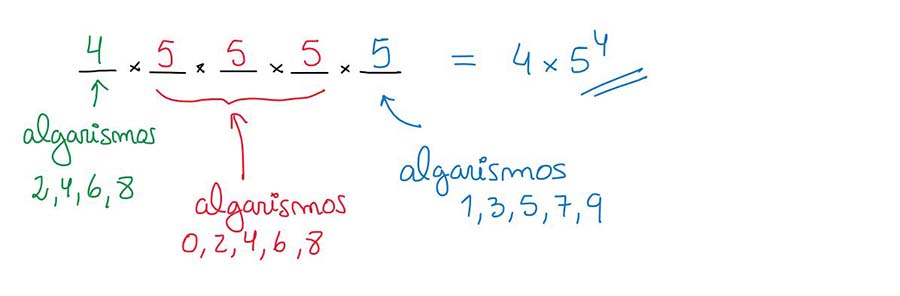 4 × 5 × 5 × 5 × 5 = 4 × 5⁴
algarismos
2,4,6,8
algarismos
0,2,4,6,8
algarismos
1,3,5,7,9